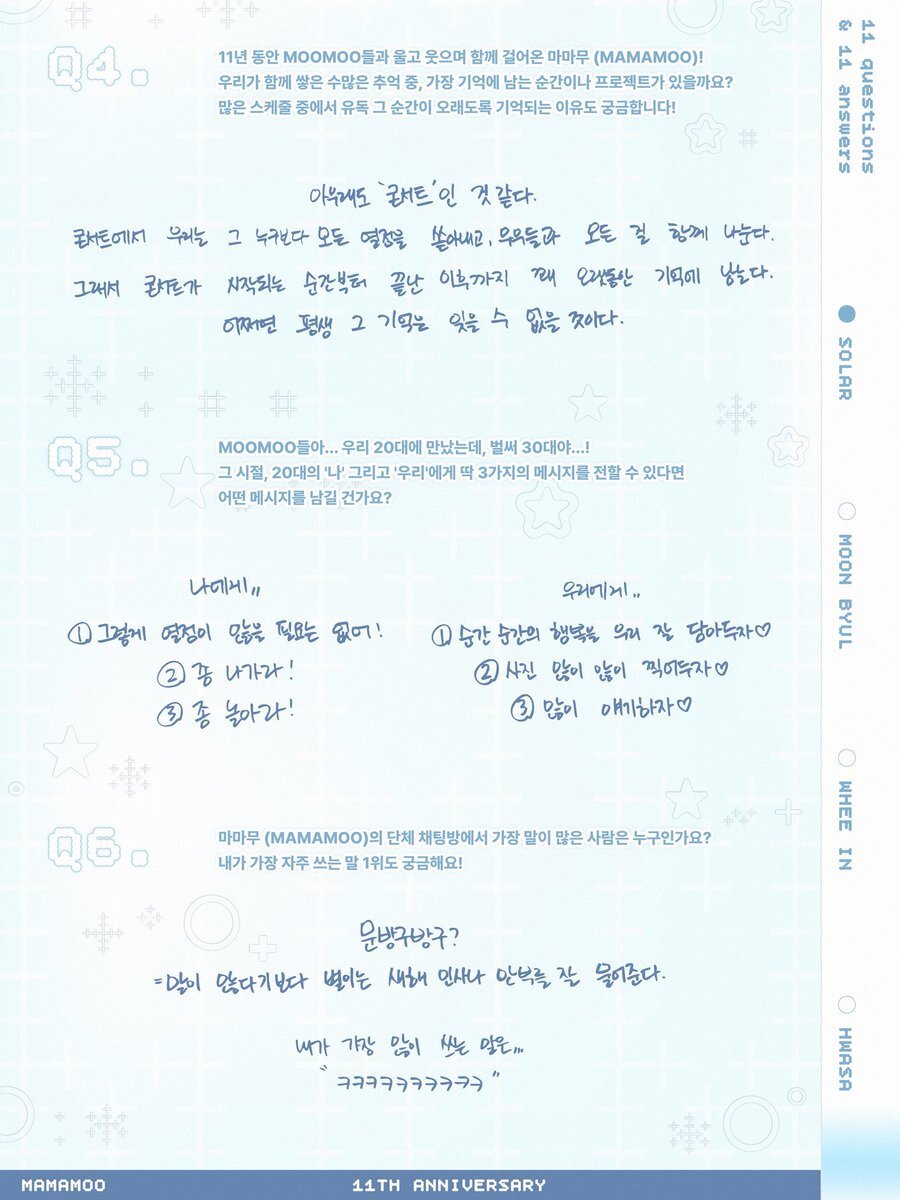 Q4.
11년 동안 MOOMOO들과 울고 웃으며 함께 걸어온 마마무 (MAMAMOO)!
우리가 함께 쌓은 수많은 추억 중, 가장 기억에 남는 순간이나 프로젝트가 있을까요?
많은 스케줄 중에서 유독 그 순간이 오래도록 기억되는 이유도 궁금합니다!
아무래도 '콘서트'인 것 같다.
콘서트에서 우리는 그 누구보다 모든 열정을 쏟아내고, 무무들과 모든 걸 함께 나눈다.
그래서 콘서트가 시작되는 순간부터 끝난 이후까지 꽤 오랫동안 기억에 남는다.
어쩌면 평생 그 기억은 잊을 수 없을 것이다.
Q5.
MOOMOO들아... 우리 20대에 만났는데, 벌써 30대야...!
그 시절, 20대의 '나' 그리고 '우리'에게 딱 3가지의 메시지를 전할 수 있다면
어떤 메시지를 남길 건가요?
나에게,,
① 그렇게 열정이 많을 필요는 없어!
② 좀 나가라!
③ 좀 놀아라!
우리에게..
① 순간 순간의 행복을 우리 잘 담아두자♡
② 사진 많이 많이 찍어두자♡
③ 많이 얘기하자♡
Q6.
마마무 (MAMAMOO)의 단체 채팅방에서 가장 말이 많은 사람은 누구인가요?
내가 가장 자주 쓰는 말 1위도 궁금해요!
문방구방구?
=말이 많다기보다 별이는 새해 인사나 안부를 잘 물어준다.
내가 가장 많이 쓰는 말은,,,
"ㅋㅋㅋㅋㅋㅋㅋㅋㅋㅋ"
11 questions
& 11 answers
SOLAR
MOON BYUL
WHEE IN
HWASA
MAMAMOO
11TH ANNIVERSARY